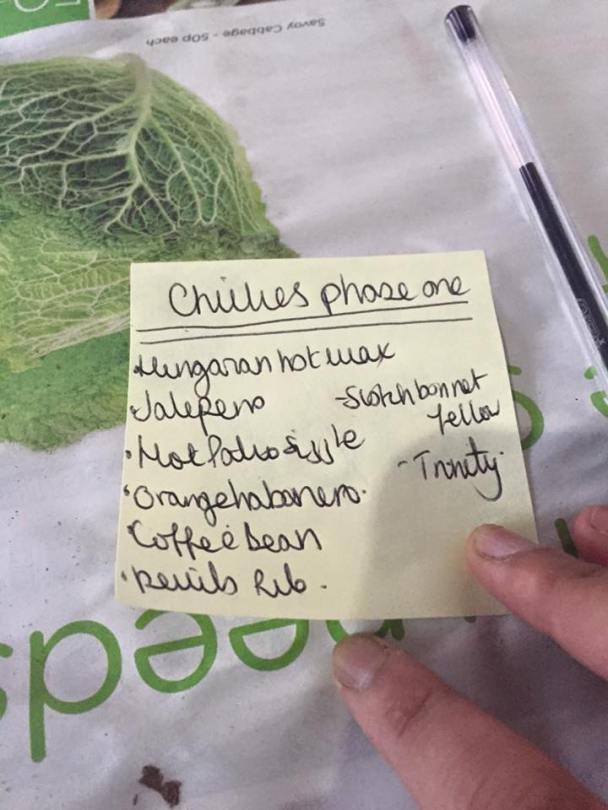 Savoy Cabbage - 50p each
Chillies phase one
·Hungaran hot wax
·Jalepeno
·Hot Patio sizzle
·Orange habanero.
·Coffee bean
·Devils Rib.
-Scotch bonnet
Yellow
-Trinity.